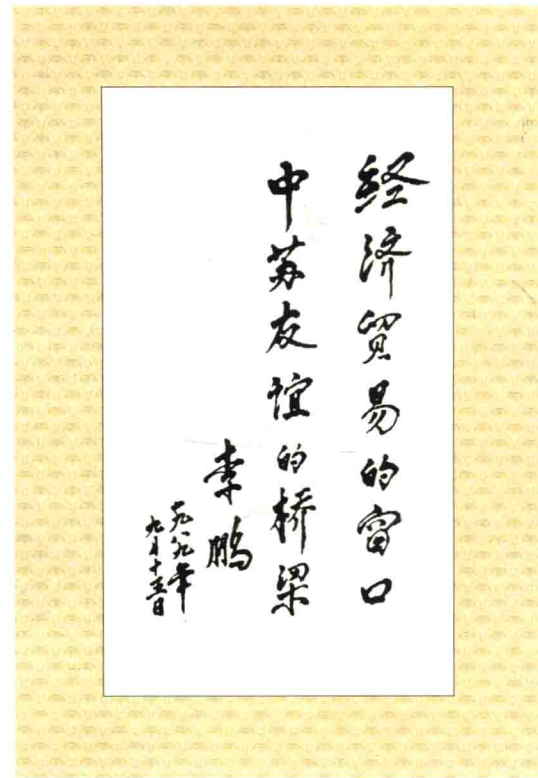 经济贸易的窗口
中苏友谊的桥梁
李鹏
一九八九年
九月十五日